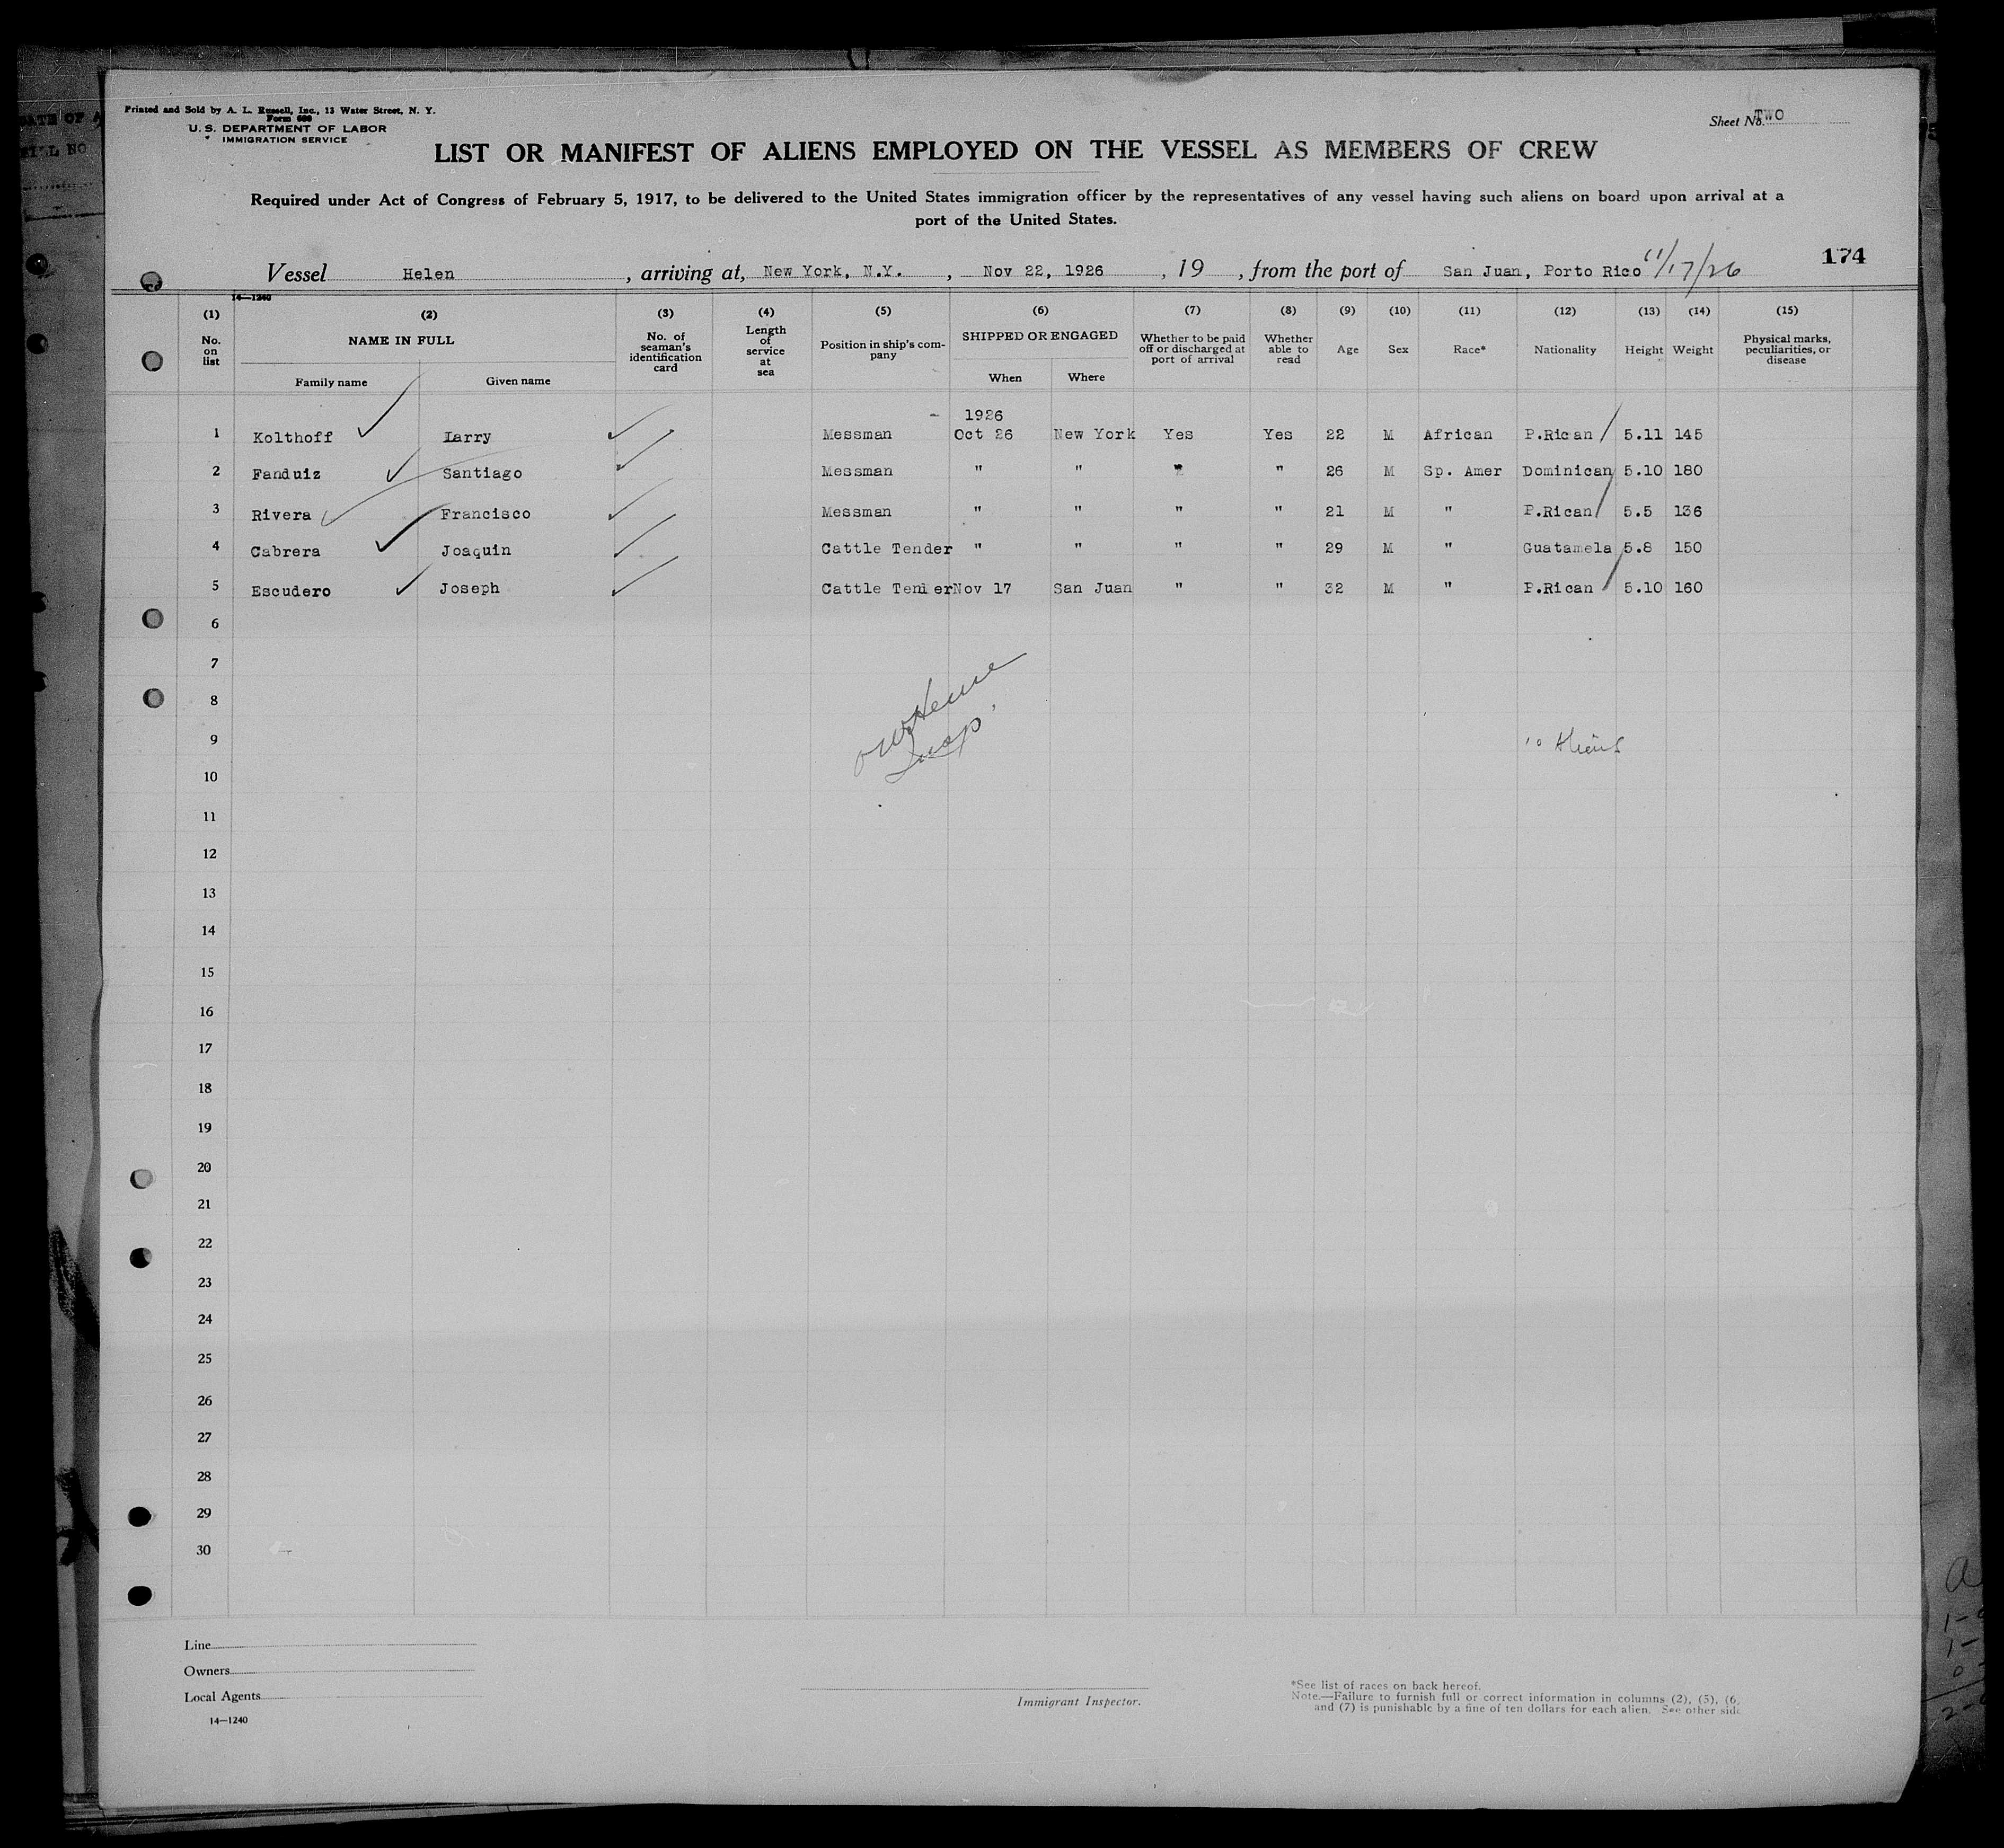 Printed and Sold by A. L. Russell, Inc., 13 Water Street, N. Y.
Form 680
U. S. DEPARTMENT OF LABOR
IMMIGRATION SERVICE
Sheet No. TWO
LIST OR MANIFEST OF ALIENS EMPLOYED ON THE VESSEL AS MEMBERS OF CREW
Required under Act of Congress of February 5, 1917, to be delivered to the United States immigration officer by the representatives of any vessel having such aliens on board upon arrival at a
port of the United States.
174
Vessel Helen , arriving at, New York, N.Y. , Nov 22, 1926 , 19 , from the port of San Juan, Porto Rico 11/17/26
14—1240
(1) (2) (3) (4) (5) (6) (7) (8) (9) (10) (11) (12) (13) (14) (15)
No. on list NAME IN FULL Family name Given name No. of seaman's identification card Length of service at sea Position in ship's company SHIPPED OR ENGAGED When Where Whether to be paid off or discharged at port of arrival Whether able to read Age Sex Race* Nationality Height Weight Physical marks, peculiarities, or disease
1926
1 Kolthoff Larry Messman Oct 26 New York Yes Yes 22 M African P.Rican 5.11 145
2 Fanduiz Santiago Messman " " " " 26 M Sp. Amer Dominican 5.10 180
3 Rivera Francisco Messman " " " " 21 M " P.Rican 5.5 136
4 Cabrera Joaquin Cattle Tender " " " " 29 M " Guatamela 5.8 150
5 Escudero Joseph Cattle Tender Nov 17 San Juan " " 32 M " P.Rican 5.10 160
6
7
8
9 10 Aliens
10
11
12
13
14
15
16
17
18
19
20
21
22
23
24
25
26
27
28
29
30
Line
Owners
Local Agents
14—1240
Immigrant Inspector.
*See list of races on back hereof.
Note.—Failure to furnish full or correct information in columns (2), (5), (6,
and (7) is punishable by a fine of ten dollars for each alien. See other side